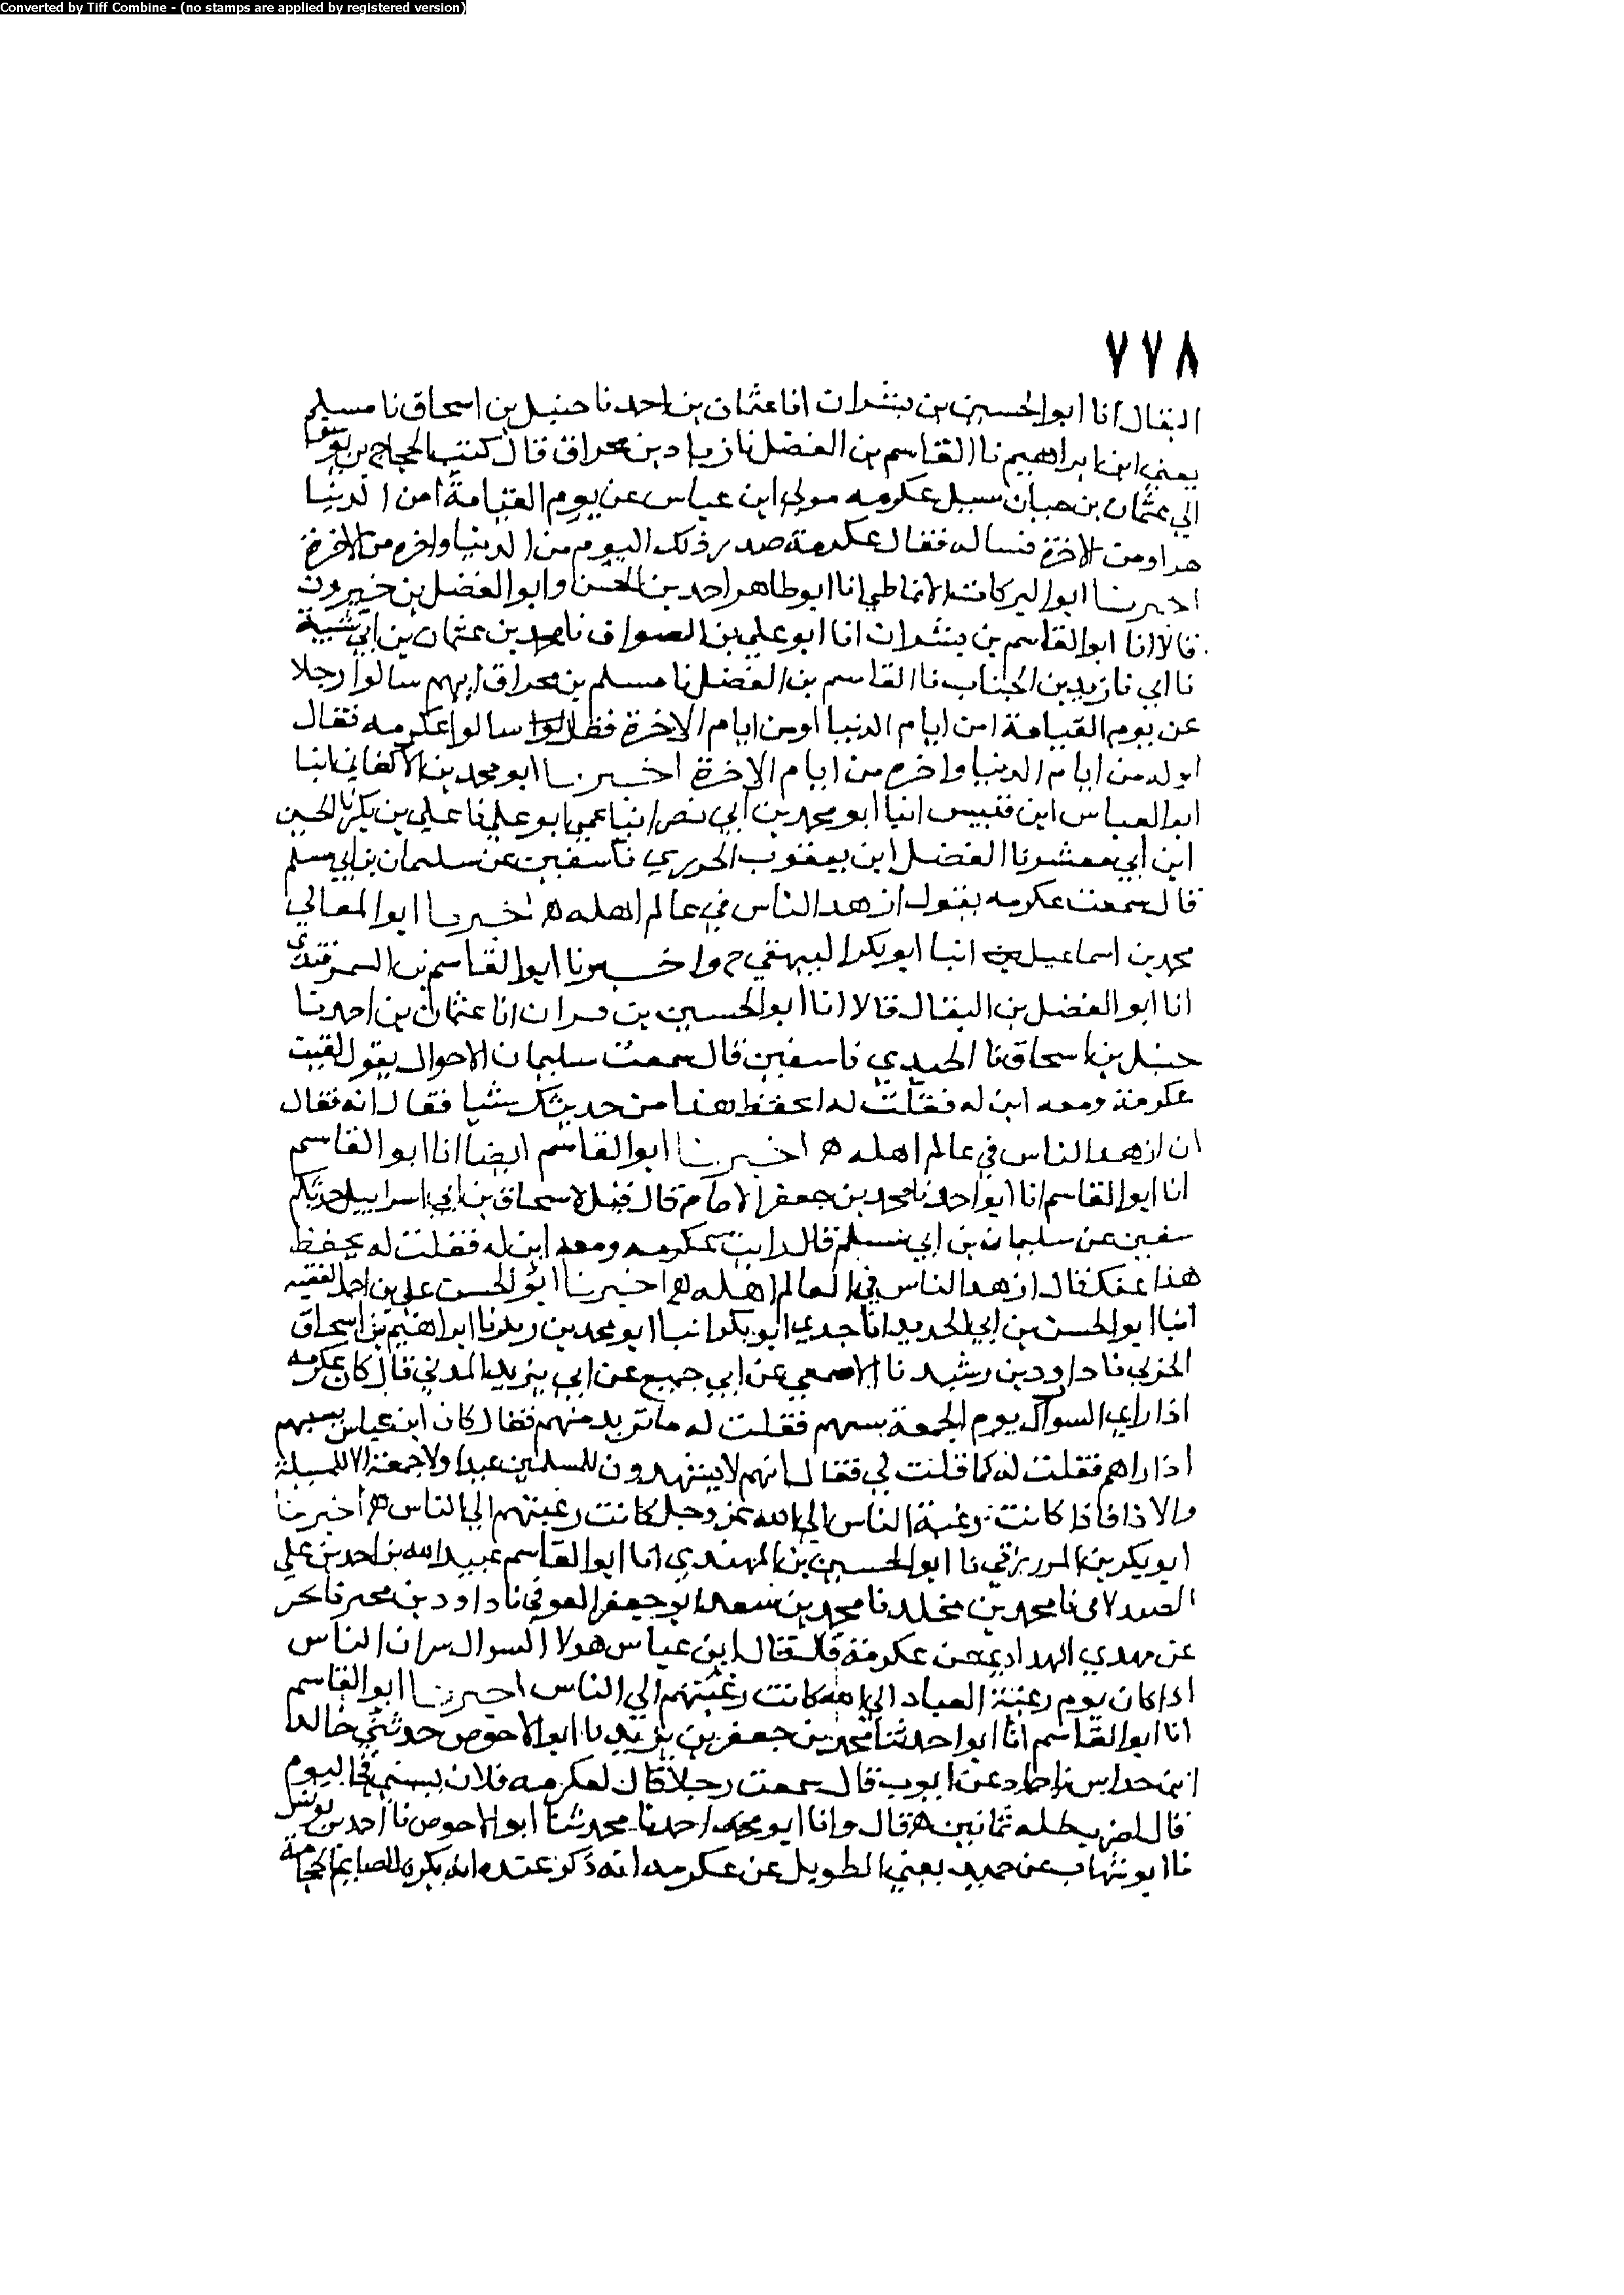 Converted by Tiff Combine - (no stamps are applied by registered version)
٧٧٨
البقال انا ابو الحسين بن بشران انا عثمان بن احمد نا حنبل بن اسحاق نا مسلم
يعني ابن ابراهيم نا القاسم بن الفضل نا زياد بن مخراق قال كتب الحجاج بن يوسف
الي عثمان بن حيان سيل عكرمه مولي ابن عباس عن يوم القيامة امن الدنيا
هو او من الاخرة فساله فقال عكرمة صدر ذلك اليوم من الدنيا واخره من الاخرة
اخبرنا ابو البركات الانماطي انا ابو طاهر احمد بن الحسن وابو الفضل بن خيرون
قالا انا ابو القاسم بن بشران انا ابو علي بن الصواف نا محمد بن عثمان بن ابي شيبة
نا ابي نا زيد بن الحباب نا القاسم بن الفضل نا مسلم بن مخراق انهم سالوا رجلا
عن يوم القيامة امن ايام الدنيا او من ايام الاخرة سالوا عكرمه فقال
اوله من ايام الدنيا واخره من ايام الاخرة اخبرنا ابو محمد بن الاكفاني انبا
ابو العباس ابن قبيس انبا ابو محمد بن ابي نصر انبا عمي ابو علي نا علي بن بكر نا الحسين
ابن ابي معشر نا الفضل ابن يعقوب الجزري نا سفين عن سليمان بن ابي مسلم
قال سمعت عكرمه يقول ازهد الناس في عالم اهله ه اخبرنا ابو المعالي
محمد بن اسماعيل انبا ابو بكر البيهقي ح واخبرنا ابو القاسم بن السمرقندي
انا ابو الفضل بن البقال قالا انا ابو الحسين بن انا عثمان بن احمد نا
حنبل بن اسحاق نا الحميدي نا سفين قال سمعت سليمان الاحوال يقول لقيت
عكرمة ومعه ابن له فقلت له ايحفظ هذا من حديثك شيا فقال انه فقال
ان ازهد الناس في عالم اهله ه اخبرنا ابو القاسم ايضا انا ابو القاسم
انا ابو القاسم انا ابو احمد نا محمد بن جعفر الامام قال قيل لاسحاق بن ابي اسراييل حدثكم
سفين عن سليمان بن ابي مسلم قال رايت عكرمه ومعه ابن له فقلت له يحفظ
هذا عنك فقال ازهد الناس في العالم اهله ه اخبرنا ابو الحسن علي بن احمد الفقيه
انبا ابو الحسن بن ابي الحديد انا جدي ابو بكر انبا ابو محمد بن زبر نا ابراهيم بن اسحاق
الحربي نا داود بن رشيد نا الاصمعي عن ابي جميع عن ابي يزيد المدني قال كان عكرمه
اذا راي السوال يوم الجمعة سبهم فقلت له ما تريد منهم فقال كان ابن عباس يسبهم
اذا راهم فقلت له كما قلت لي فقال انهم لا يشهدون للمسلمين عيدا ولا جمعة الا للمسيلة
والاذا فاذا كانت رغبة الناس الي الله عز وجل كانت رغبتهم الي الناس ه اخبرنا
ابو بكر بن المزرقي نا ابو الحسين بن المهتدي انا ابو القاسم عبيد الله بن احمد بن علي
الصيدلاني نا محمد بن مخلد نا محمد بن سعد ابو جعفر العوفي نا داود بن محبر نا بحر
عن مهدي عن عكرمة قال قال ابن عباس هولا السوال شران الناس
اذا كان يوم رغبة العباد الي الله كانت رغبتهم الي الناس اخبرنا ابو القاسم
انا ابو القاسم انا ابو احمد ثنا محمد بن جعفر بن يزيد نا ابو الاحوص حدثني خالد
ابن خداش نا حماد عن ايوب قال سمعت رجلا قال لعكرمه فلان يسبني في اليوم
قال اضرب ظله ثمانين ه قال وانا ابو احمد نا محمد ثنا ابو الاحوص نا احمد بن يونس
نا ابو شهاب عن حميد يعني الطويل عن عكرمه انه ذكر عنده انه يكره للصايم الحجامة